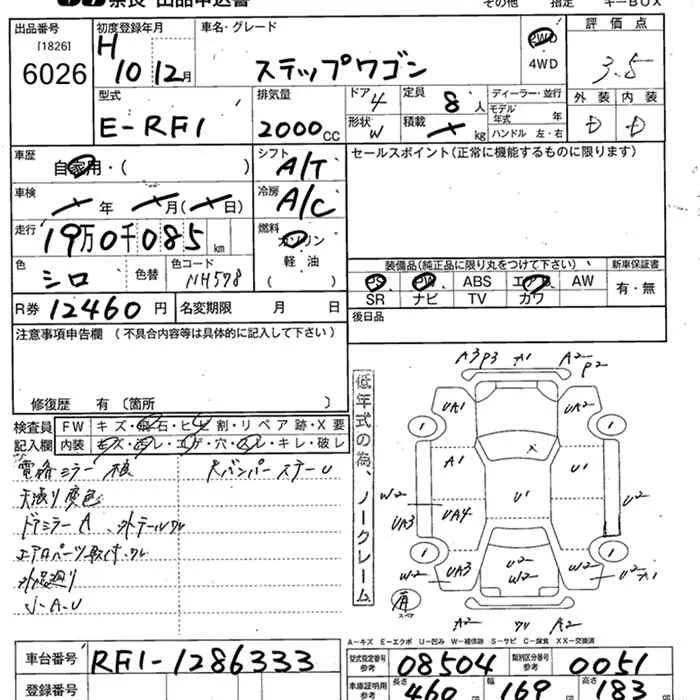 奈良 出品申込書
その他 指定 キーBOX
出品番号 [1826] 6026
初度登録年月 H 10年 12月
車名・グレード ステップワゴン
2WD 4WD
評価点 3.5
型式 E-RF1
排気量 2000cc
ドア 4
形状 W
定員 8人
積載 kg
ディーラー・並行
モデル年式 年
ハンドル 左・右
外装 D 内装 D
車歴 自家用・( )
シフト A/T
セールスポイント(正常に機能するものに限ります)
車検 年 月( 日)
冷房 A/C
走行 19万0千085km
燃料 ガソリン 軽油 ( )
色 シロ 色替 色コード NH578
装備品(純正品に限り丸をつけて下さい) 新車保証書
PS PW ABS エアB AW 有・無
SR ナビ TV カワ
R券 12460円 名変期限 月 日
後日品
注意事項申告欄 (不具合内容等は具体的に記入して下さい)
修復歴 有 〔箇所 〕
検査員記入欄
FW キズ・飛石・ヒビ割・リペア跡・X要
内装 キズ・汚レ・コゲ・穴・スレ・キレ・破レ
電格ミラー
天張り変色
ドアミラーA
エアロパーツ
低年式の為、ノークレーム
A3 P3 A1 A2 P2
UA1 UA2
1 1
A1 X U1
W2 UA3 UA4 U1 U2
1 1
W2 UA3 U2 W2 W2 U2 A1
スペア
A2 ワレ A2
A-キズ E-エクボ U-凹み W-補修跡 S-サビ C-腐食 XX-交換済
車台番号 RF1-1286333
型式指定番号 参考 08504 類別区分番号 参考 0051
登録番号
車庫証明用 参考 長さ 460 幅 169 高さ 183